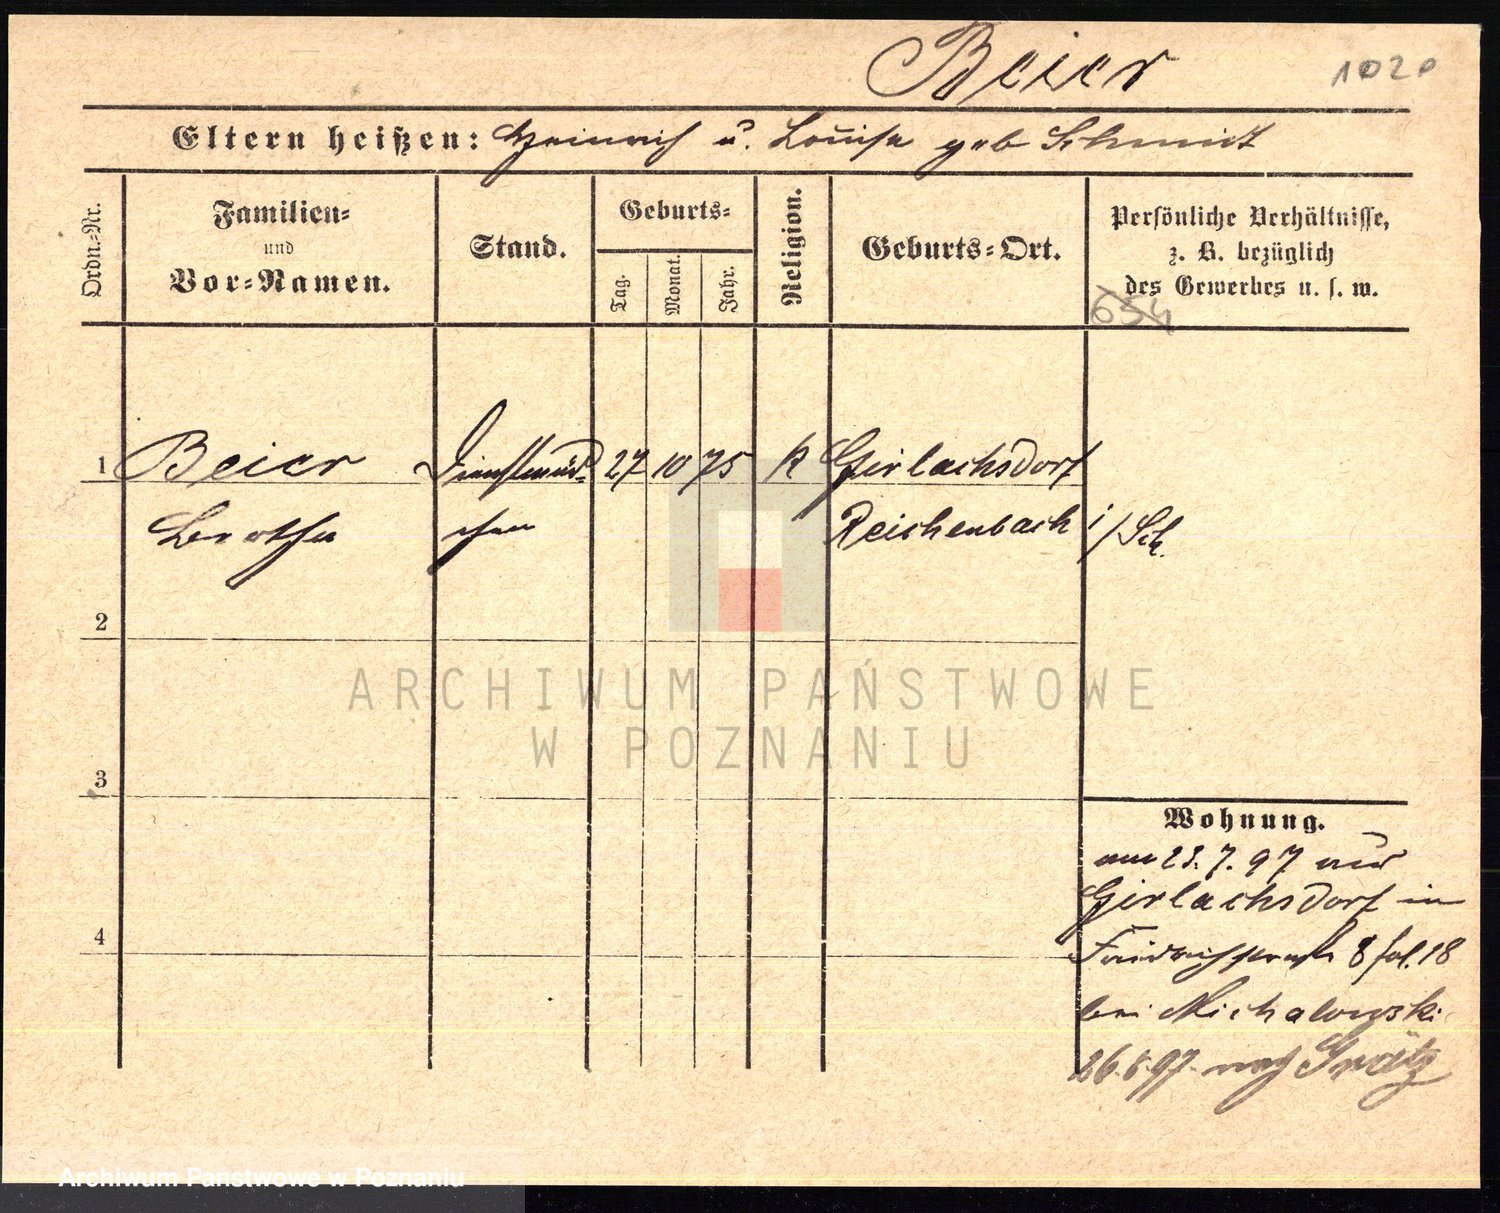 Beier 1020
Eltern heißen: Heinrich u. Louise geb Schmidt
Ordn.-Nr.
Familien-
und
Vor-Namen.
Stand.
Geburts-
Tag.
Monat.
Jahr.
Religion.
Geburts-Ort.
Persönliche Verhältnisse,
z. B. bezüglich
des Gewerbes u. s. w.
654
1 Beier Dienstmäd- 27 10 75 K Girlachsdorf
Bertha chen Reichenbach i/Sch.
2
3
4
Wohnung.
am 23.7.97 aus
Girlachsdorf in
Friedrichstraße 8 fol. 18
bei Michalowski
26.8.97. nach Grätz
ARCHIWUM PAŃSTWOWE
W POZNANIU
Archiwum Państwowe w Poznaniu